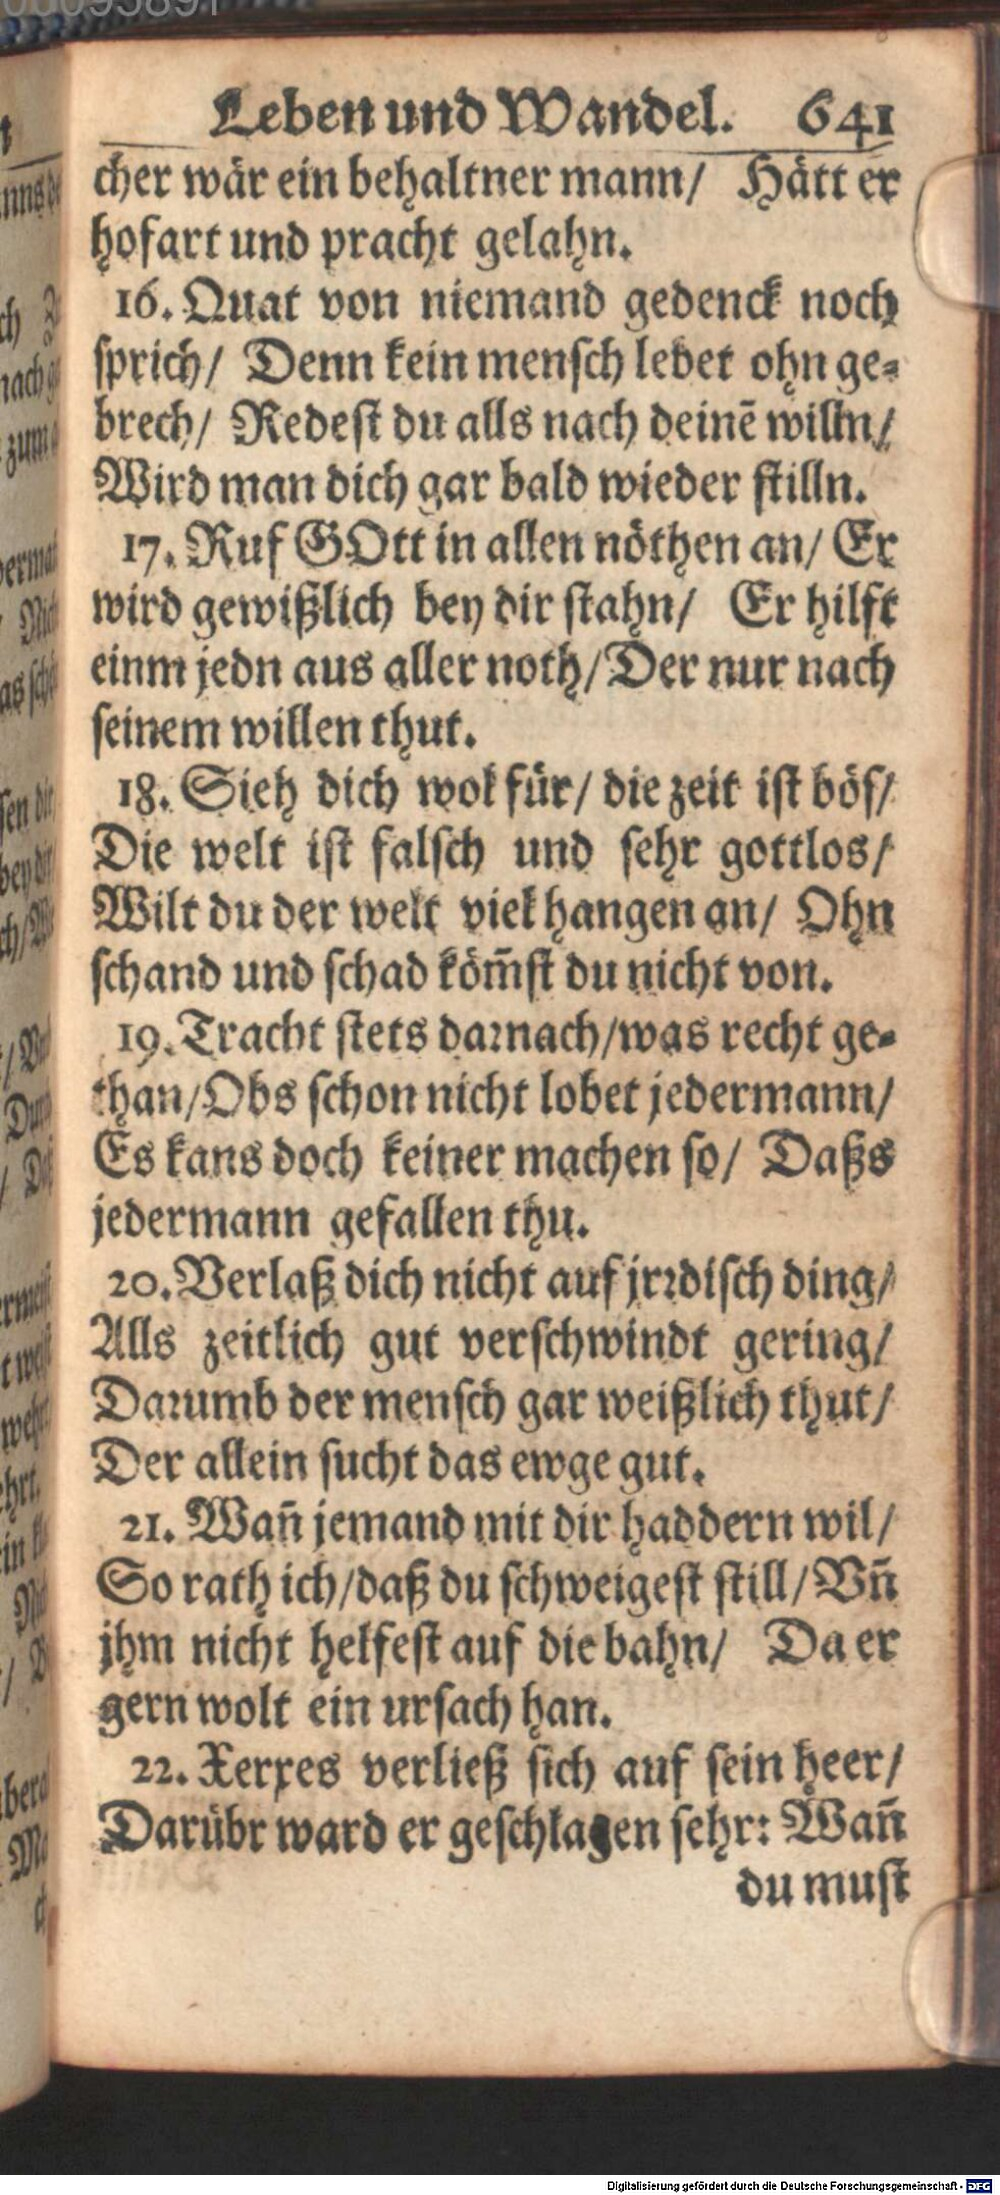 Leben und Wandel. 641
cher wär ein behaltner mann/ Hätt er
hofart und pracht gelahn.
16. Quat von niemand gedenck noch
sprich/ Denn kein mensch lebet ohn ge-
brech/ Redest du alls nach deinē willn/
Wird man dich gar bald wieder stilln.
17. Ruf GOtt in allen nöthen an/ Er
wird gewißlich bey dir stahn/ Er hilft
einm jedn aus aller noth/ Der nur nach
seinem willen thut.
18. Sieh dich wol für/ die zeit ist bös/
Die welt ist falsch und sehr gottlos/
Wilt du der welt viel hangen an/ Ohn
schand und schad köm̃st du nicht von.
19. Tracht stets darnach/ was recht ge-
than/ Obs schon nicht lobet jedermann/
Es kans doch keiner machen so/ Daßs
jedermann gefallen thu.
20. Verlaß dich nicht auf jrrdisch ding/
Alls zeitlich gut verschwindt gering/
Darumb der mensch gar weißlich thut/
Der allein sucht das ewge gut.
21. Wañ jemand mit dir haddern wil/
So rath ich/ daß du schweigest still/ Vñ
jhm nicht helfest auf die bahn/ Da er
gern wolt ein ursach han.
22. Xerxes verließ sich auf sein heer/
Darübr ward er geschlagen sehr: Wañ
du must
Digitalisierung gefördert durch die Deutsche Forschungsgemeinschaft - DFG